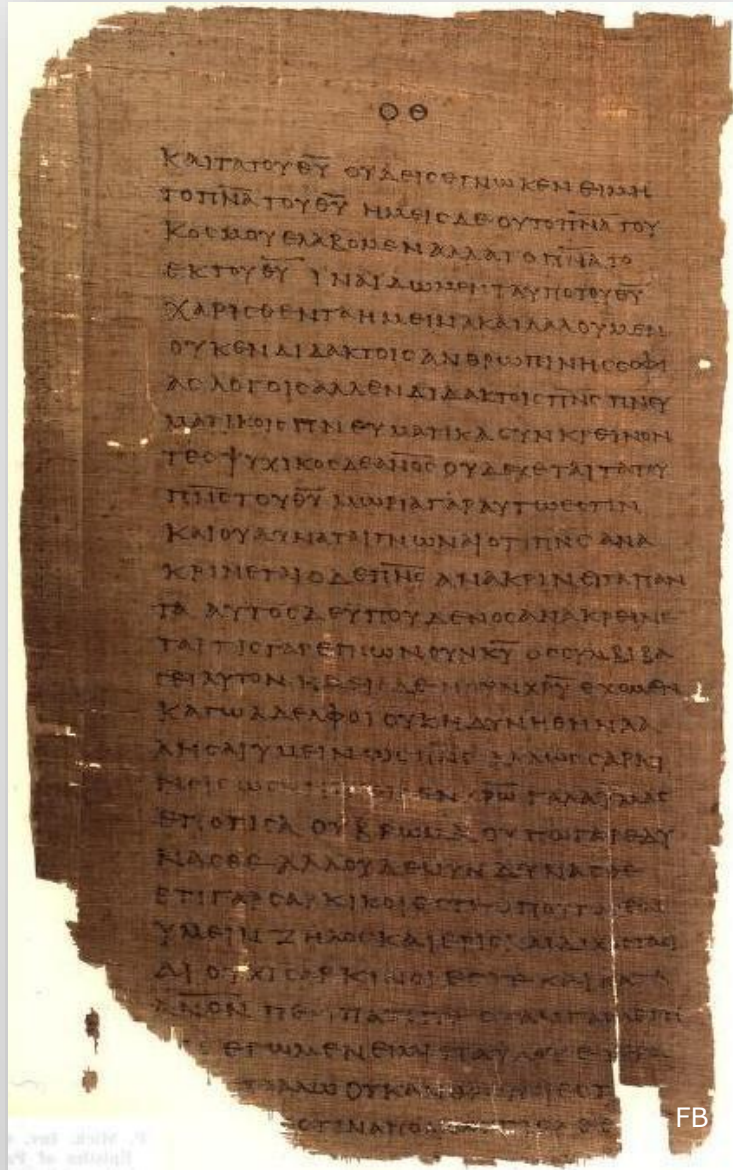 ΟΘ
ΚΑΙΤΑΤΟΥΘ̅Υ̅ ΟΥΔΕΙCΕΓΝΩΚΕΝΕΙΜΗ
ΤΟΠ̅Ν̅Α̅ΤΟΥΘ̅Υ̅ ΗΜΕΙCΔΕΟΥΤΟΠ̅Ν̅Α̅ΤΟΥ
ΚΟCΜΟΥΕΛΑΒΟΜΕΝΑΛΛΑΤΟΠ̅Ν̅Α̅ΤΟ
ΕΚΤΟΥΘ̅Υ̅ ΙΝΑΙΔΩΜΕΝΤΑΥΠΟΤΟΥΘ̅Υ̅
ΧΑΡΙCΘΕΝΤΑΗΜΕΙΝΑΚΑΙΛΑΛΟΥΜΕΝ
ΟΥΚΕΝΔΙΔΑΚΤΟΙCΑΝΘΡΩΠΙΝΗCCΟΦΙ
ΑCΛΟΓΟΙCΑΛΛΕΝΔΙΔΑΚΤΟΙCΠ̅Ν̅C̅ΠΝΕΥ
ΜΑΤΙΚΟΙCΠΝΕΥΜΑΤΙΚΑCΥΝΚΡΕΙΝΟΝ
ΤΕCΨΥΧΙΚΟCΔΕΑ̅Ν̅Ο̅C̅ΟΥΔΕΧΕΤΑΙΤΑΤΟΥ
Π̅Ν̅C̅ΤΟΥΘ̅Υ̅ΜΩΡΙΑΓΑΡΑΥΤΩΕCΤΙΝ
ΚΑΙΟΥΔΥΝΑΤΑΙΓΝΩΝΑΙΟΤΙΠ̅Ν̅C̅ΑΝΑ
ΚΡΙΝΕΤΑΙΟΔΕΠ̅Ν̅C̅ΑΝΑΚΡΙΝΕΙΤΑΠΑΝ
ΤΑ ΑΥΤΟCΔΕΥΠΟΥΔΕΝΟCΑΝΑΚΡΕΙΝΕ
ΤΑΙΤΙCΓΑΡΕΓΝΩΝΟΥΝΚ̅Υ̅ ΟCCΥΜΒΙΒΑ
CΕΙΑΥΤΟΝΗΜΕΙCΔΕΝΟΥΝΧ̅Ρ̅Υ̅ΕΧΟΜΕΝ
ΚΑΓΩΑΔΕΛΦΟΙΟΥΚΗΔΥΝΗΘΗΝΛΑ
ΛΗCΑΙΥΜΕΙΝΩCΠ̅Ν̅C̅ΑΛΛΩCCΑΡΚΙ
ΝΟΙCΩCΝΗΠΙΟΙCΕΝΧ̅Ρ̅Ω̅ΓΑΛΑΥΜΑC
ΕΠΟΤΙCΑ ΟΥΒΡΩΜΑΟΥΠΩΓΑΡΕΔΥ
ΝΑCΘΕΑΛΛΟΥΔΕΝΥΝΔΥΝΑCΘΕ
ΕΤΙΓΑΡCΑΡΚΙΚΟΙΕCΤΕΟΠΟΥΓΑΡΕΝ
ΥΜΕΙΝΖΗΛΟCΚΑΙΕΡΙCΚΑΙΔΙΧΟCΤΑCΙ
ΑΙΟΥΧΙCΑΡΚΙΝΟΙΕCΤΕΚΑΙΚΑΤΑ
Α̅Ν̅Ο̅Ν̅ΠΕΡΙΠΑΤΕΙΤΕ
ΕΓΩΜΕΝΕΙΜΙΠΑΥΛΟΥ
ΟΥΚΑΝΘΡΩΠΟΙΕCΤ
FB